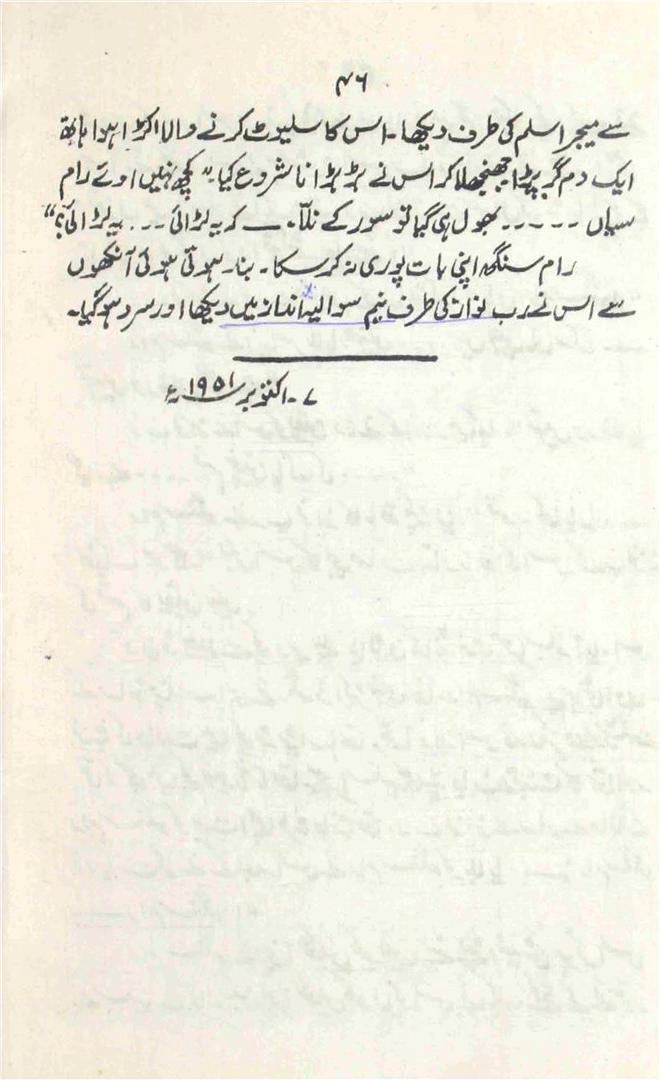 ۴۶
سے میجر اسلم کی طرف دیکھا۔ اس کا سلیوٹ کرنے والا اکڑا ہوا ہاتھ
ایک دم گر پڑا جھنجھلا کر اس نے بڑبڑانا شروع کیا۔ "کچھ نہیں اوئے رام
سیاں ۔۔۔۔۔ بھول ہی گیا تو سور کے نلّا۔ ـــ کہ یہ لڑائی ۔۔۔ یہ لڑائی؟"
رام سنگھ اپنی بات پوری نہ کر سکا۔ بند ہوتی ہوئی آنکھوں
سے اس نے رب نواز کی طرف نیم سوالیہ انداز میں دیکھا اور سرد ہو گیا۔
۷۔ اکتوبر ۱۹۵۱ء